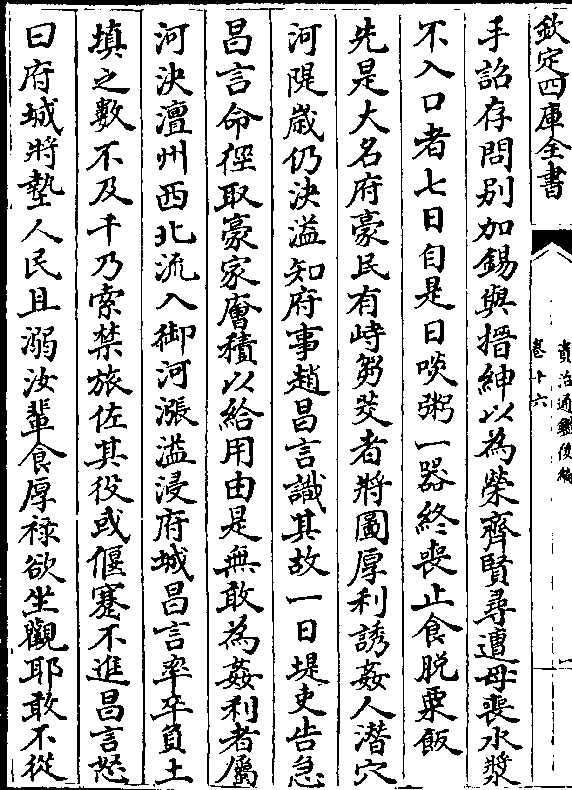 欽定四庫全書
資治通鑑後編
卷十六
手詔存問别加錫與搢紳以為榮齊賢尋遭母喪水漿
不入口者七日自是日啖粥一器終喪止食脱粟飯
先是大名府豪民有峙芻茭者將圖厚利誘姦人潛穴
河隄嵗仍決溢知府事趙昌言識其故一日堤吏告急
昌言命徑取豪家廥積以給用由是無敢為姦利者屬
河決澶州西北流入御河漲溢浸府城昌言率卒負土
填之數不及千乃索禁旅佐其役或偃蹇不進昌言怒
曰府城將墊人民且溺汝輩食厚禄欲坐觀耶敢不從